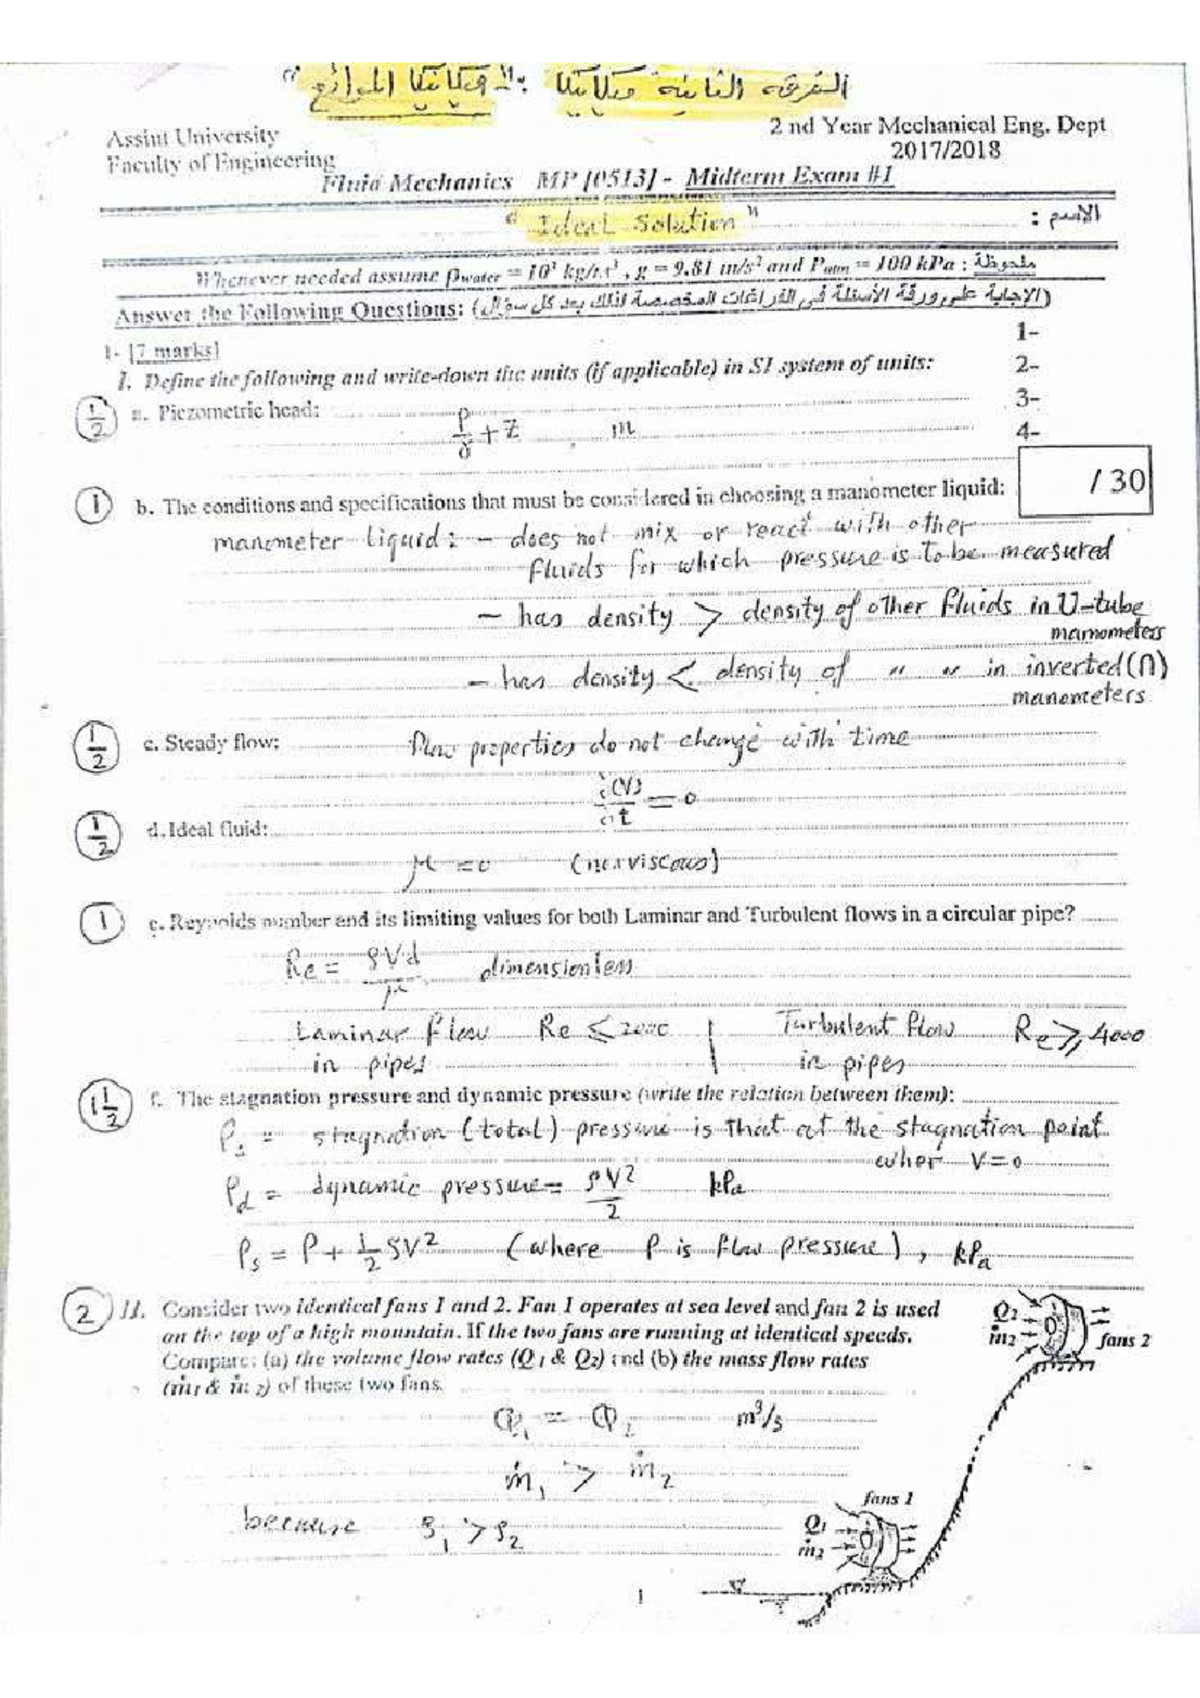 الفرقه الثانيه ميكانيكا :- "ميكانيكا الموائع"
Assiut University
2 nd Year Mechanical Eng. Dept
Faculty of Engineering
2017/2018
Fluid Mechanics MP [0513] - Midterm Exam #1
الاسم :
" Ideal Solution "
Whenever needed assume ρwater = 10³ kg/m³ , g = 9.81 m/s² and Patm = 100 kPa : ملحوظة
Answer the Following Questions: (الإجابة على ورقة الأسئلة فى الفراغات المخصصة لذلك بعد كل سؤال)
1-
1- [7 marks]
I. Define the following and write-down the units (if applicable) in SI system of units:
2-
3-
1/2 a. Piezometric head:
P/γ + Z m
4-
/ 30
1 b. The conditions and specifications that must be considered in choosing a manometer liquid:
manometer liquid: - does not mix or react with other
fluids for which pressure is to be measured
- has density > density of other fluids in U-tube
manometers
- has density < density of " " in inverted (∩)
manometers
1/2 c. Steady flow:
flow properties do not change with time
∂( )/∂t = 0
1/2 d. Ideal fluid:
μ = 0 (nonviscous)
1 e. Reynolds number and its limiting values for both Laminar and Turbulent flows in a circular pipe?
Re = ρVd/μ dimensionless
Laminar flow Re ≤ 2000 | Turbulent flow Re ≥ 4000
in pipes | in pipes
1 1/2 f. The stagnation pressure and dynamic pressure (write the relation between them):
Ps = stagnation (total) pressure is that at the stagnation point
wher V=0
Pd = dynamic pressure = ρV²/2 kPa
Ps = P + 1/2 ρV² (where P is flow pressure) , kPa
2 II. Consider two identical fans 1 and 2. Fan 1 operates at sea level and fan 2 is used
on the top of a high mountain. If the two fans are running at identical speeds.
Compare: (a) the volume flow rates (Q1 & Q2) and (b) the mass flow rates
(ṁ1 & ṁ2) of these two fans.
Q2
ṁ2
fans 2
Q1 = Q2 m³/s
ṁ1 > ṁ2
because ρ1 > ρ2
fans 1
Q1
ṁ2
1